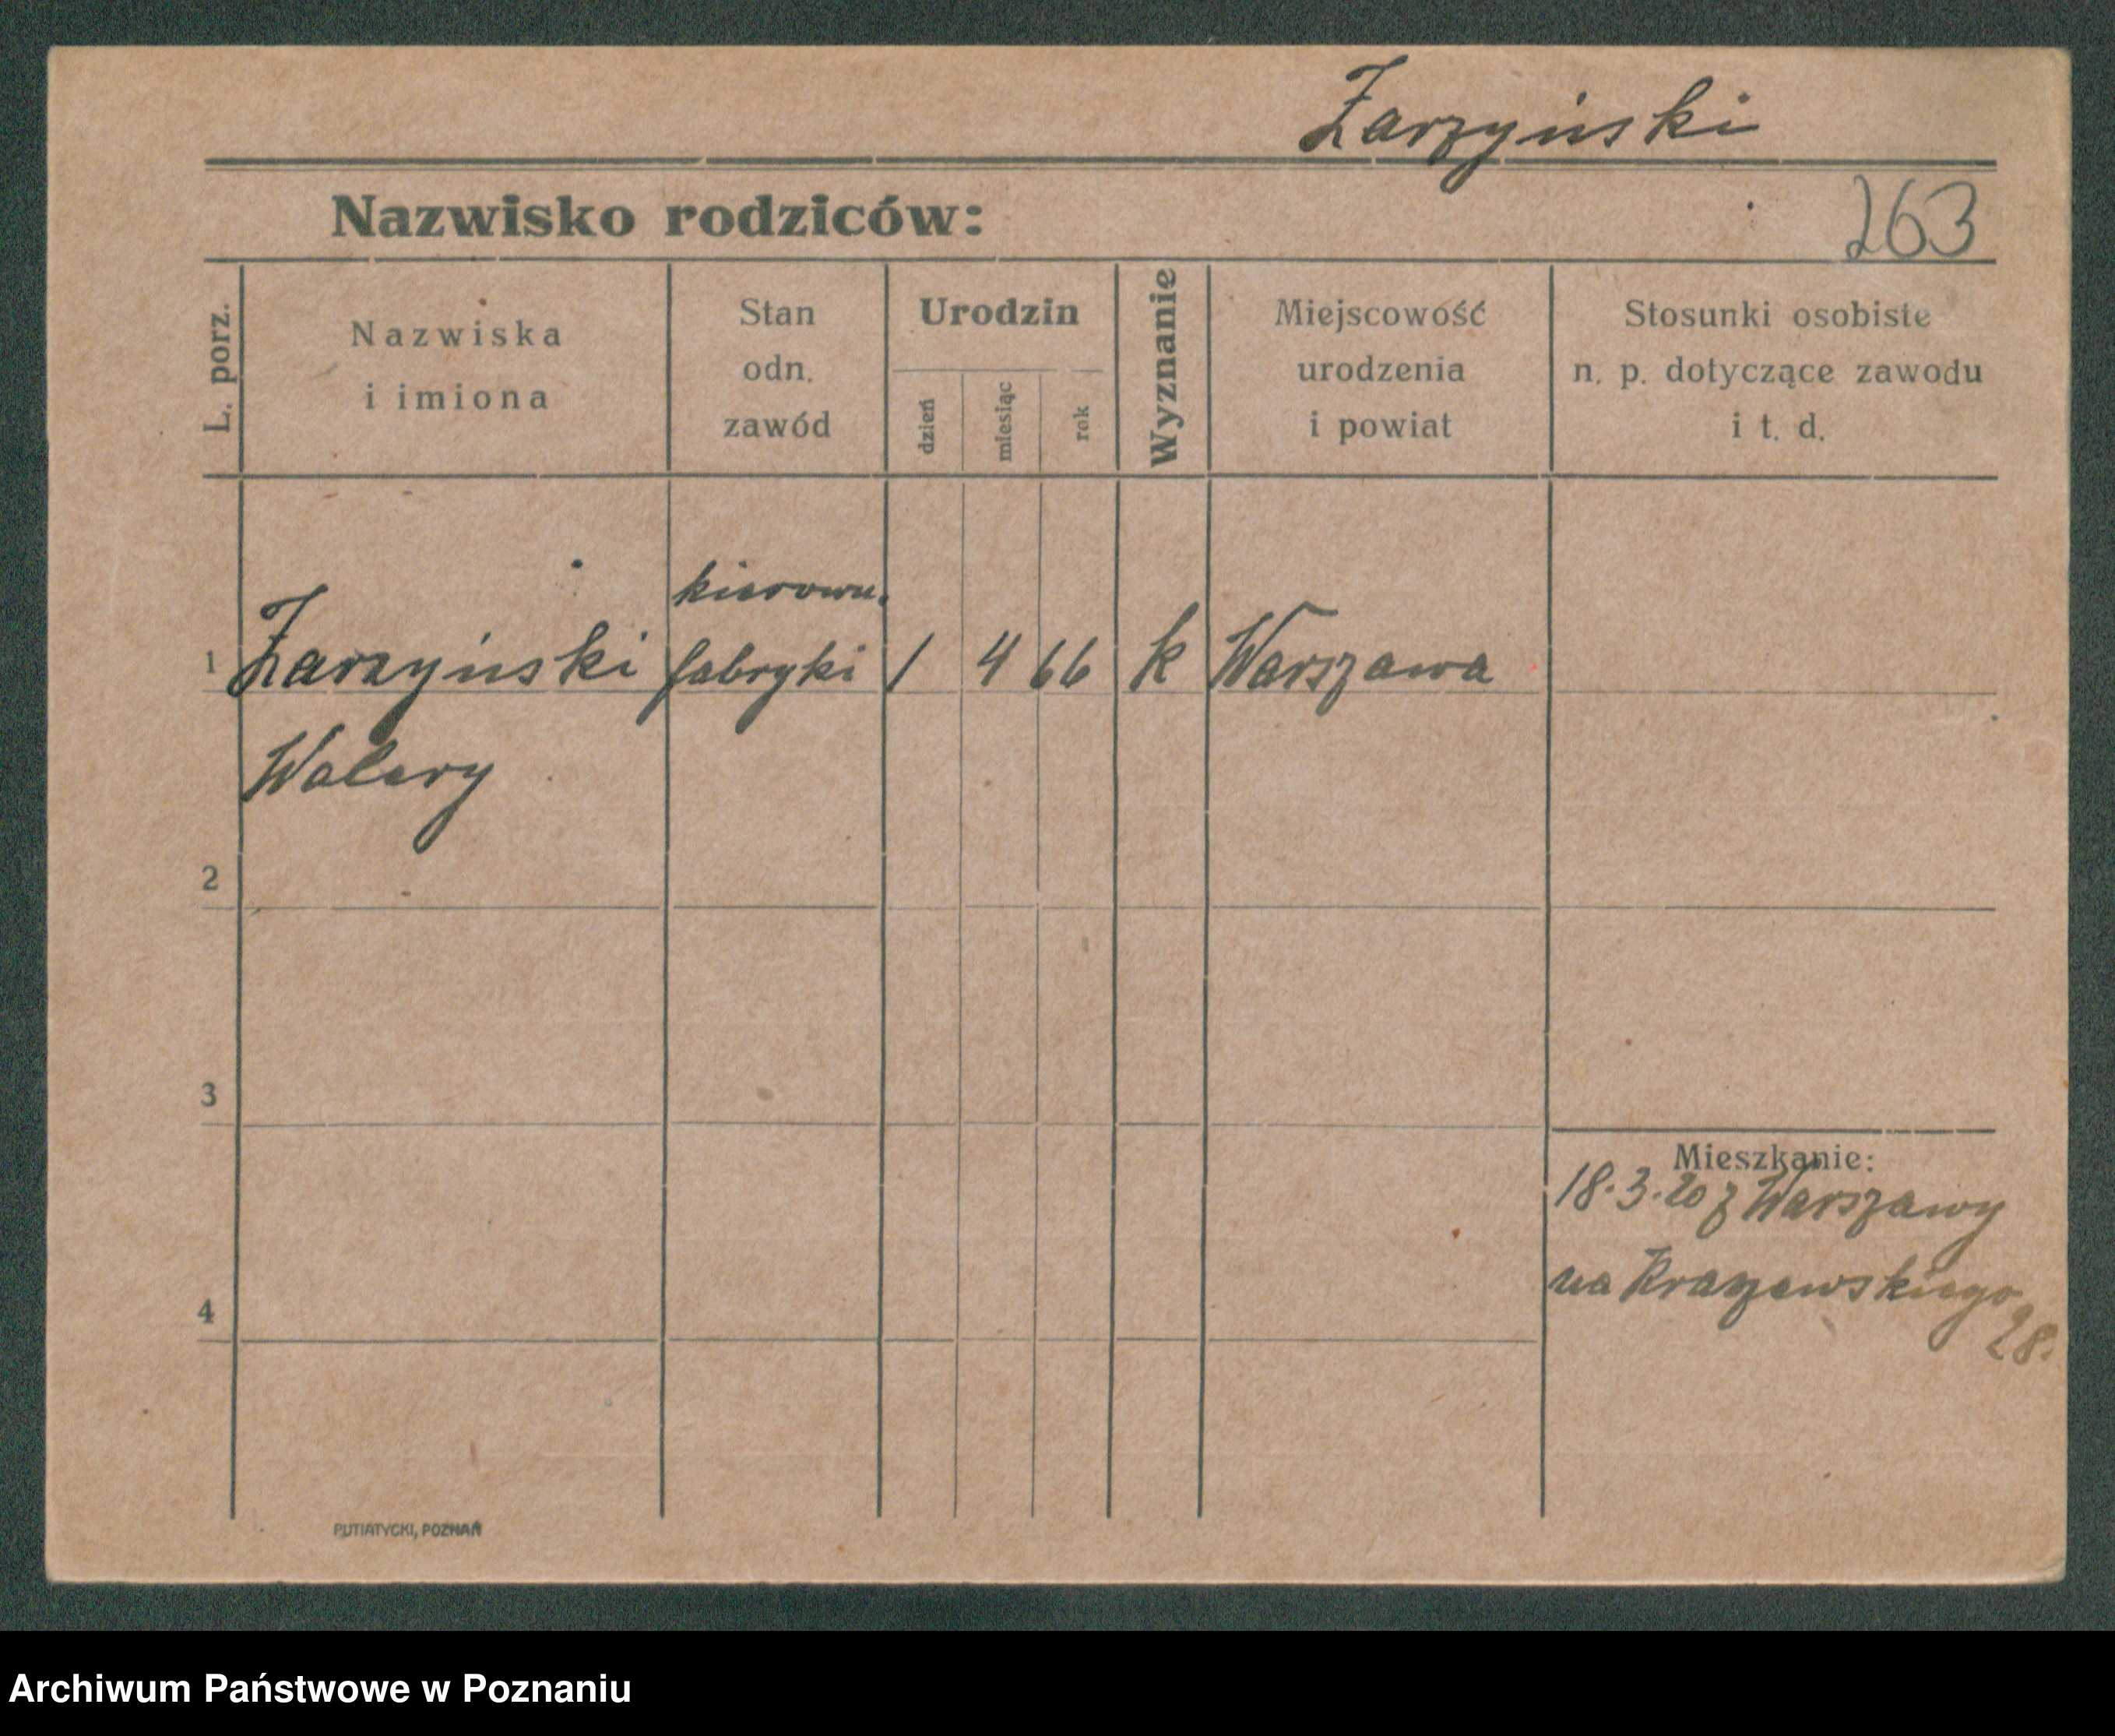 Żarzyński
Nazwisko rodziców:
263
L. porz.
Nazwiska
i imiona
Stan
odn.
zawód
Urodzin
dzień
miesiąc
rok
Wyznanie
Miejscowość
urodzenia
i powiat
Stosunki osobiste
n. p. dotyczące zawodu
i t. d.
kierown.
1 Żarzyński fabryki 1 4 66 k Warszawa
Walery
2
3
Mieszkanie:
18.3.20 z Warszawy
na Kraszewskiego
28.
4
PUTIATYCKI, POZNAŃ
Archiwum Państwowe w Poznaniu